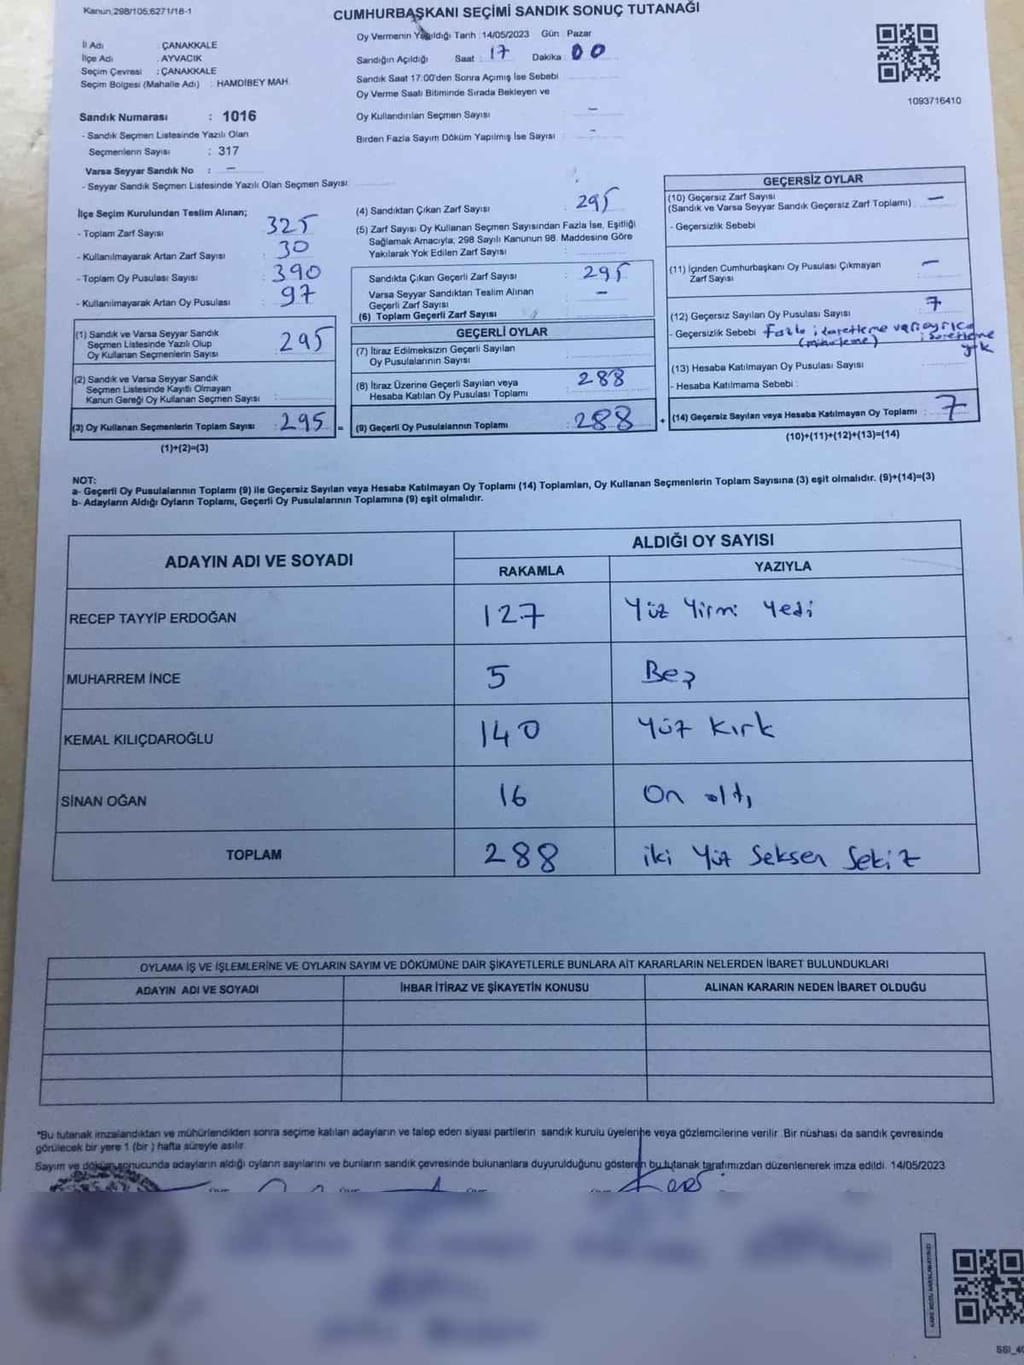 Kanun,298/105,6271/18-1
CUMHURBAŞKANI SEÇİMİ SANDIK SONUÇ TUTANAĞI
İl Adı : ÇANAKKALE
İlçe Adı : AYVACIK
Seçim Çevresi : ÇANAKKALE
Seçim Bölgesi (Mahalle Adı) : HAMDİBEY MAH.
Sandık Numarası : 1016
- Sandık Seçmen Listesinde Yazılı Olan
Seçmenlerin Sayısı : 317
Varsa Seyyar Sandık No : –
- Seyyar Sandık Seçmen Listesinde Yazılı Olan Seçmen Sayısı
Oy Vermenin Yapıldığı Tarih : 14/05/2023 Gün : Pazar
Sandığın Açıldığı Saat : 17 Dakika : 00
Sandık Saat 17:00'den Sonra Açımış İse Sebebi
Oy Verme Saati Bitiminde Sırada Bekleyen ve
Oy Kullandırılan Seçmen Sayısı –
Birden Fazla Sayım Döküm Yapılmış İse Sayısı –
1093716410
İlçe Seçim Kurulundan Teslim Alınan;
- Toplam Zarf Sayısı : 325
- Kullanılmayarak Artan Zarf Sayısı : 30
- Toplam Oy Pusulası Sayısı : 390
- Kullanılmayarak Artan Oy Pusulası : 97
(1) Sandık ve Varsa Seyyar Sandık
Seçmen Listesinde Yazılı Olup
Oy Kullanan Seçmenlerin Sayısı : 295
(2) Sandık ve Varsa Seyyar Sandık
Seçmen Listesinde Kayıtlı Olmayan
Kanun Gereği Oy Kullanan Seçmen Sayısı :
(3) Oy Kullanan Seçmenlerin Toplam Sayısı : 295 =
(1)+(2)=(3)
(4) Sandıktan Çıkan Zarf Sayısı : 295
(5) Zarf Sayısı Oy Kullanan Seçmen Sayısından Fazla İse, Eşitliği
Sağlamak Amacıyla, 298 Sayılı Kanunun 98. Maddesine Göre
Yakılarak Yok Edilen Zarf Sayısı :
Sandıkta Çıkan Geçerli Zarf Sayısı : 295
Varsa Seyyar Sandıktan Teslim Alınan
Geçerli Zarf Sayısı : –
(6) Toplam Geçerli Zarf Sayısı
GEÇERLİ OYLAR
(7) İtiraz Edilmeksizin Geçerli Sayılan
Oy Pusulalarının Sayısı
(8) İtiraz Üzerine Geçerli Sayılan veya
Hesaba Katılan Oy Pusulası Toplamı : 288
(9) Geçerli Oy Pusulalarının Toplamı : 288 +
GEÇERSİZ OYLAR
(10) Geçersiz Zarf Sayısı
(Sandık ve Varsa Seyyar Sandık Geçersiz Zarf Toplamı) : –
- Geçersizlik Sebebi
(11) İçinden Cumhurbaşkanı Oy Pusulası Çıkmayan
Zarf Sayısı –
(12) Geçersiz Sayılan Oy Pusulası Sayısı : 7
- Geçersizlik Sebebi Fazla işaretleme
(13) Hesaba Katılmayan Oy Pusulası Sayısı
- Hesaba Katılmama Sebebi :
(14) Geçersiz Sayılan veya Hesaba Katılmayan Oy Toplamı : 7
(10)+(11)+(12)+(13)=(14)
NOT:
a- Geçerli Oy Pusulalarının Toplamı (9) ile Geçersiz Sayılan veya Hesaba Katılmayan Oy Toplamı (14) Toplamları, Oy Kullanan Seçmenlerin Toplam Sayısına (3) eşit olmalıdır. (9)+(14)=(3)
b- Adayların Aldığı Oyların Toplamı, Geçerli Oy Pusulalarının Toplamına (9) eşit olmalıdır.
ADAYIN ADI VE SOYADI
ALDIĞI OY SAYISI
RAKAMLA YAZIYLA
RECEP TAYYİP ERDOĞAN 127 Yüz Yirmi Yedi
MUHARREM İNCE 5 Beş
KEMAL KILIÇDAROĞLU 140 Yüz Kırk
SİNAN OĞAN 16 On altı
TOPLAM 288 iki Yüz Seksen Sekiz
OYLAMA İŞ VE İŞLEMLERİNE VE OYLARIN SAYIM VE DÖKÜMÜNE DAİR ŞİKAYETLERLE BUNLARA AİT KARARLARIN NELERDEN İBARET BULUNDUKLARI
ADAYIN ADI VE SOYADI İHBAR İTİRAZ VE ŞİKAYETİN KONUSU ALINAN KARARIN NEDEN İBARET OLDUĞU
*Bu tutanak imzalandıktan ve mühürlendikten sonra seçime katılan adayların ve talep eden siyasi partilerin sandık kurulu üyelerine veya gözlemcilerine verilir. Bir nüshası da sandık çevresinde
görülecek bir yere 1 (bir) hafta süreyle asılır.
Sayım ve döküm sonucunda adayların aldığı oyların sayılarını ve bunların sandık çevresinde bulunanlara duyurulduğunu gösteren bu tutanak tarafımızdan düzenlenerek imza edildi. 14/05/2023